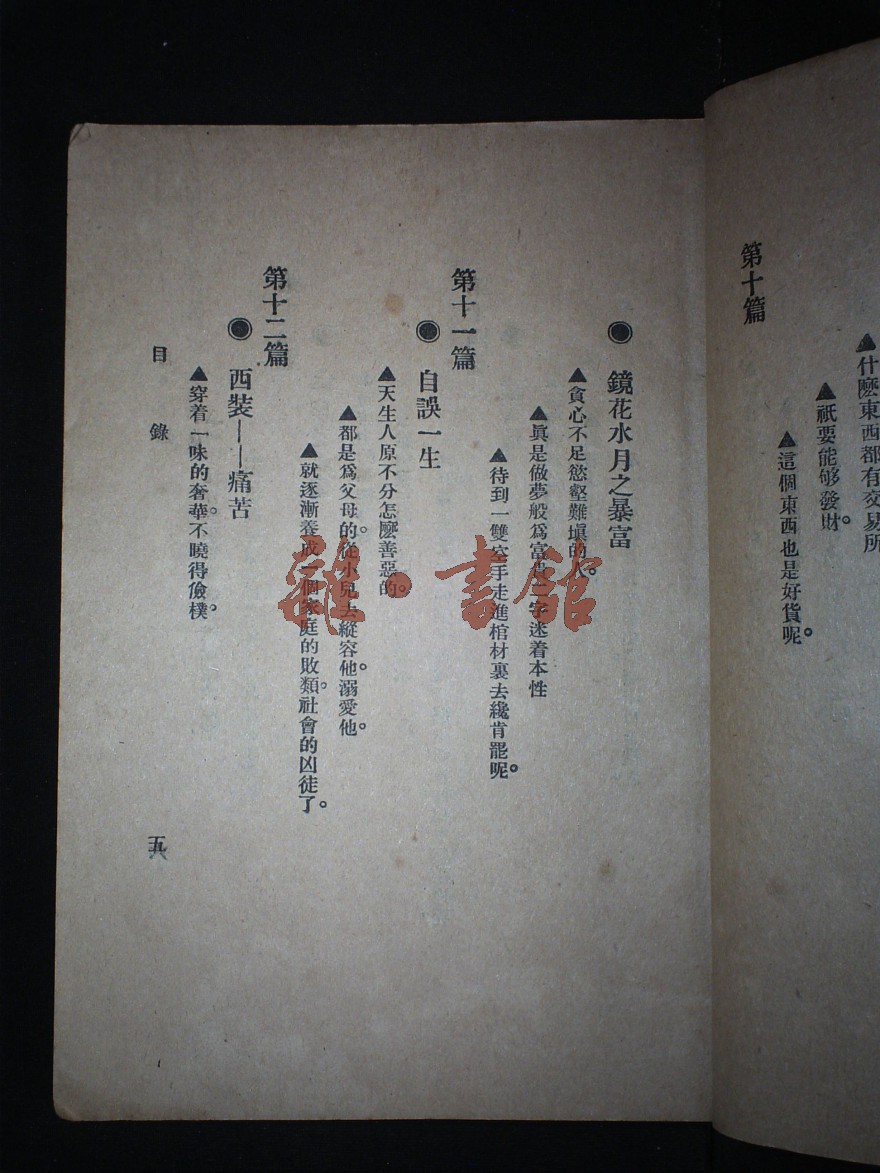 ▲什麽東西都有交易所
▲祇要能够發財。
▲這個東西也是好貨呢。
第十篇
● 鏡花水月之暴富
▲貪心不足慾壑難塡的人。
▲眞是做夢般爲富貴二字迷着本性
▲待到一雙空手走進棺材裏去纔肯罷呢。
第十一篇
● 自誤一生
▲天生人原不分怎麽善惡的。
▲都是爲父母的。從小兒去縱容他。溺愛他。
▲就逐漸養成一個家庭的敗類。社會的凶徒了。
第十二篇
● 西裝——痛苦
▲穿着一味的奢華。不曉得儉樸。
目 錄
雜·書館